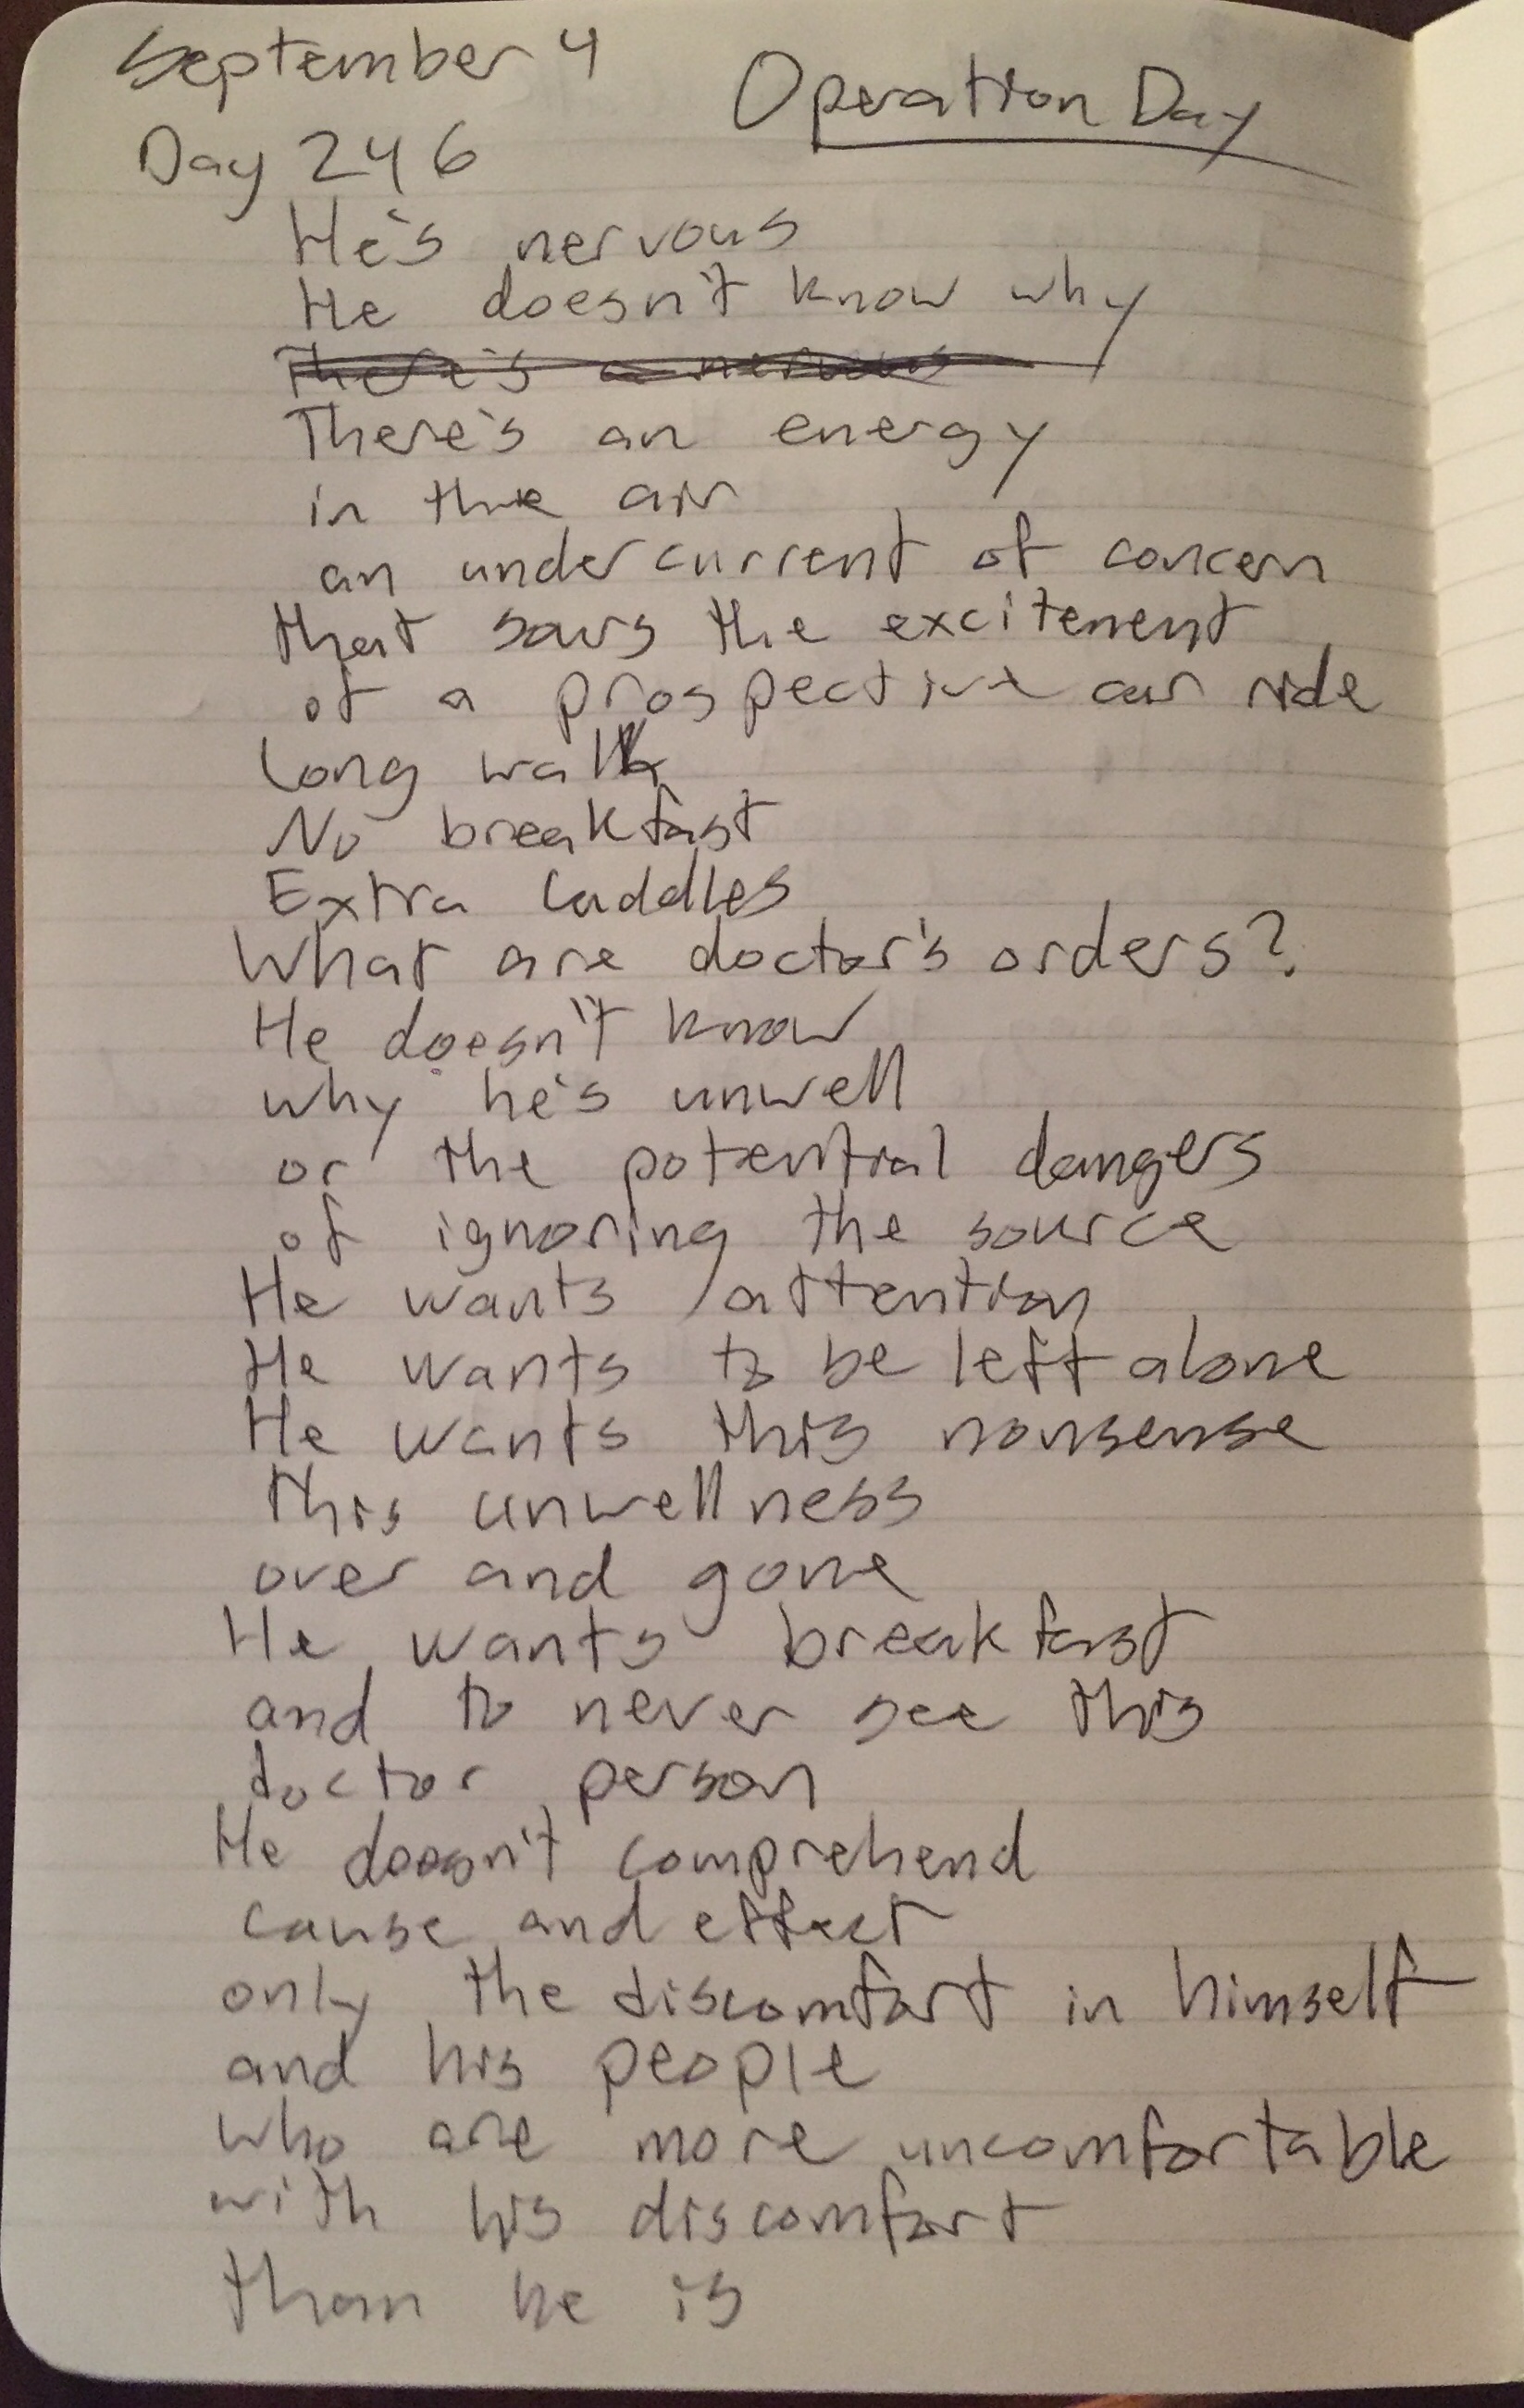 September 4
Operation Day
Day 246
He's nervous
He doesn't know why
There's a nervous
There's an energy
in the air
an undercurrent of concern
that sours the excitement
of a prospective car ride
Long walk
No breakfast
Extra cuddles
What are doctor's orders?
He doesn't know
why he's unwell
or the potential dangers
of ignoring the source
He wants attention
He wants to be left alone
He wants this nonsense
this unwellness
over and gone
He wants breakfast
and to never see this
doctor person
He doesn't comprehend
cause and effect
only the discomfort in himself
and his people
who are more uncomfortable
with his discomfort
than he is